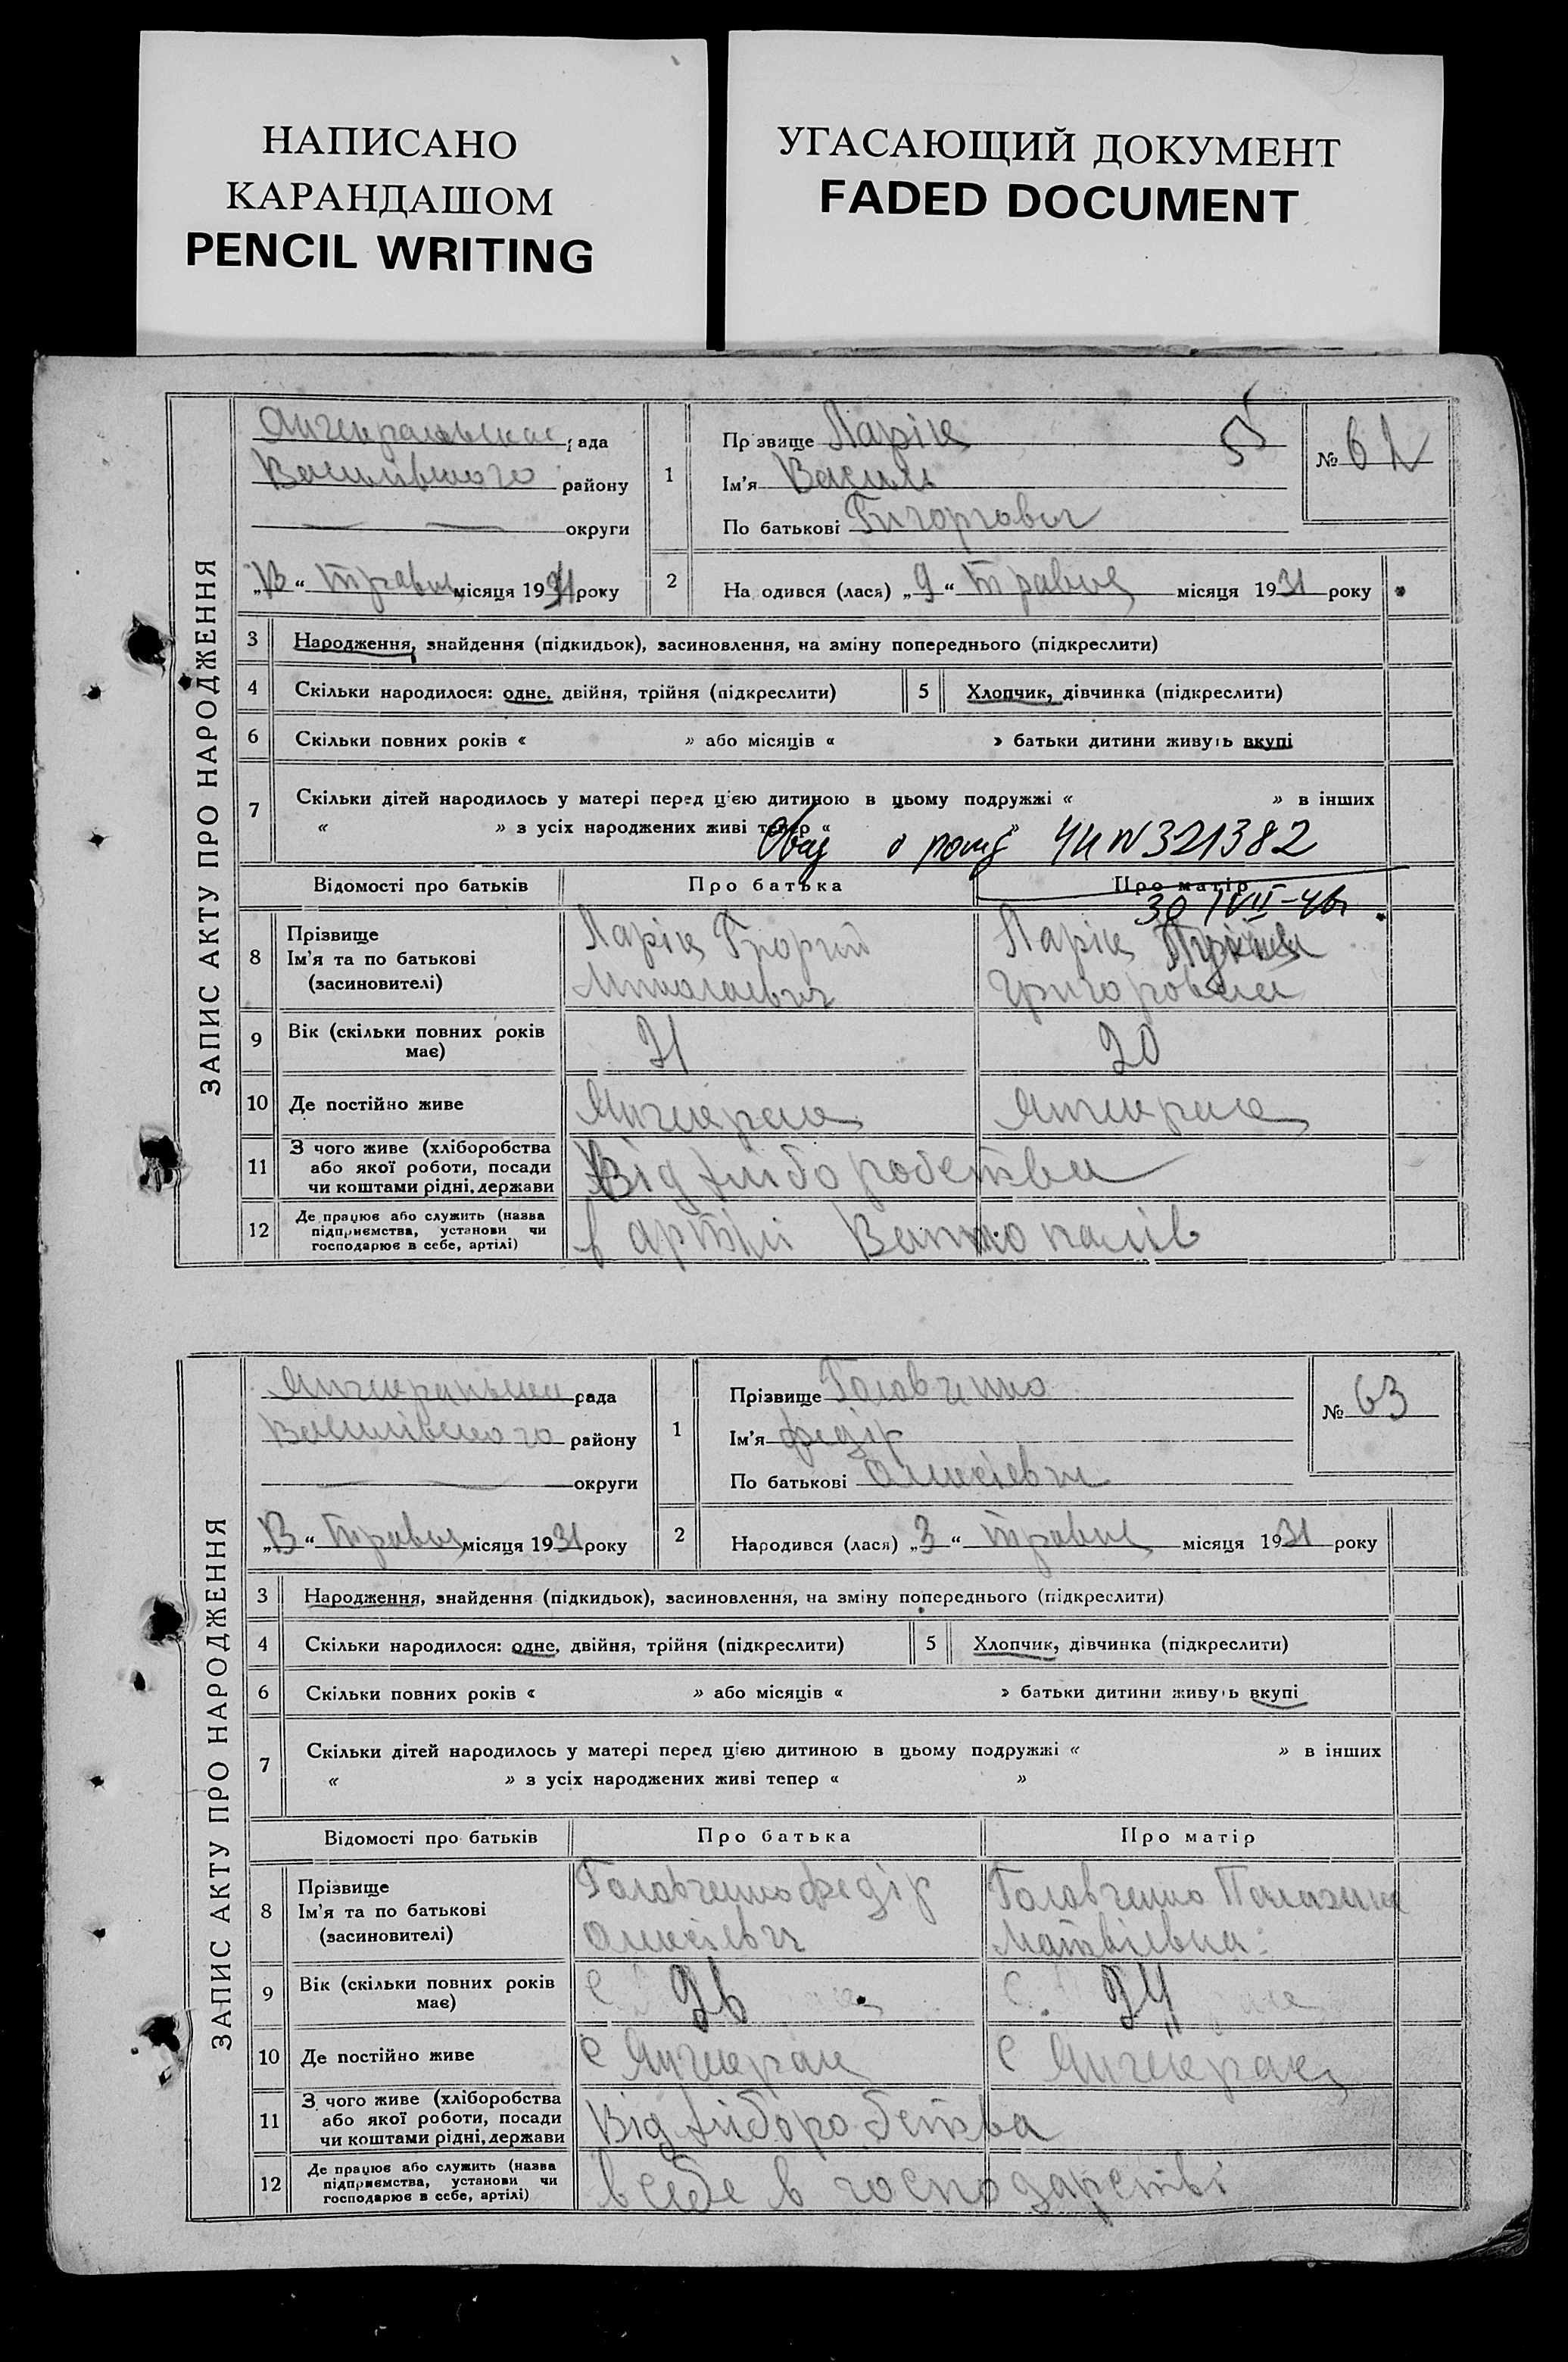 НАПИСАНО
КАРАНДАШОМ
PENCIL WRITING
УГАСАЮЩИЙ ДОКУМЕНТ
FADED DOCUMENT
ЗАПИС АКТУ ПРО НАРОДЖЕННЯ
рада
Василівського району
округи
„13“ травня місяця 1931 року
1 Прізвище Ларіна 5
Ім'я Василь
По батькові
№ 62
2 Народився (лася) „9“ травня місяця 1931 року
3 Народження, знайдення (підкидьок), засиновлення, на зміну попереднього (підкреслити)
4 Скільки народилося: одне, двійня, трійня (підкреслити) 5 Хлопчик, дівчинка (підкреслити)
6 Скільки повних років « » або місяців « » батьки дитини живуть вкупі
7 Скільки дітей народилось у матері перед цією дитиною в цьому подружжі « » в інших
« » з усіх народжених живі тепер « »
№ 321382
Відомості про батьків Про батька Про матір
30/VII-46
8 Прізвище
Ім'я та по батькові
(засиновителі)
Миколаевич
Григоровна
9 Вік (скільки повних років має) 21 20
10 Де постійно живе
11 З чого живе (хліборобства або якої роботи, посади чи коштами рідні, держави Від хліборобства
12 Де працює або служить (назва підприємства, установи чи господарює в себе, артілі) в артілі
ЗАПИС АКТУ ПРО НАРОДЖЕННЯ
рада
Василівського району
округи
„13“ травня місяця 1931 року
1 Прізвище Головченко
Ім'я Федір
По батькові Олексієвич
№ 63
2 Народився (лася) „3“ травня місяця 1931 року
3 Народження, знайдення (підкидьок), засиновлення, на зміну попереднього (підкреслити)
4 Скільки народилося: одне, двійня, трійня (підкреслити) 5 Хлопчик, дівчинка (підкреслити)
6 Скільки повних років « » або місяців « » батьки дитини живуть вкупі
7 Скільки дітей народилось у матері перед цією дитиною в цьому подружжі « » в інших
« » з усіх народжених живі тепер « »
Відомості про батьків Про батька Про матір
8 Прізвище
Ім'я та по батькові
(засиновителі)
Головченко Федір
Олексієвич
Головченко
Матвіевна
9 Вік (скільки повних років має) 26 24
10 Де постійно живе с с
11 З чого живе (хліборобства або якої роботи, посади чи коштами рідні, держави Від хліборобства
12 Де працює або служить (назва підприємства, установи чи господарює в себе, артілі) в себе в господарстві